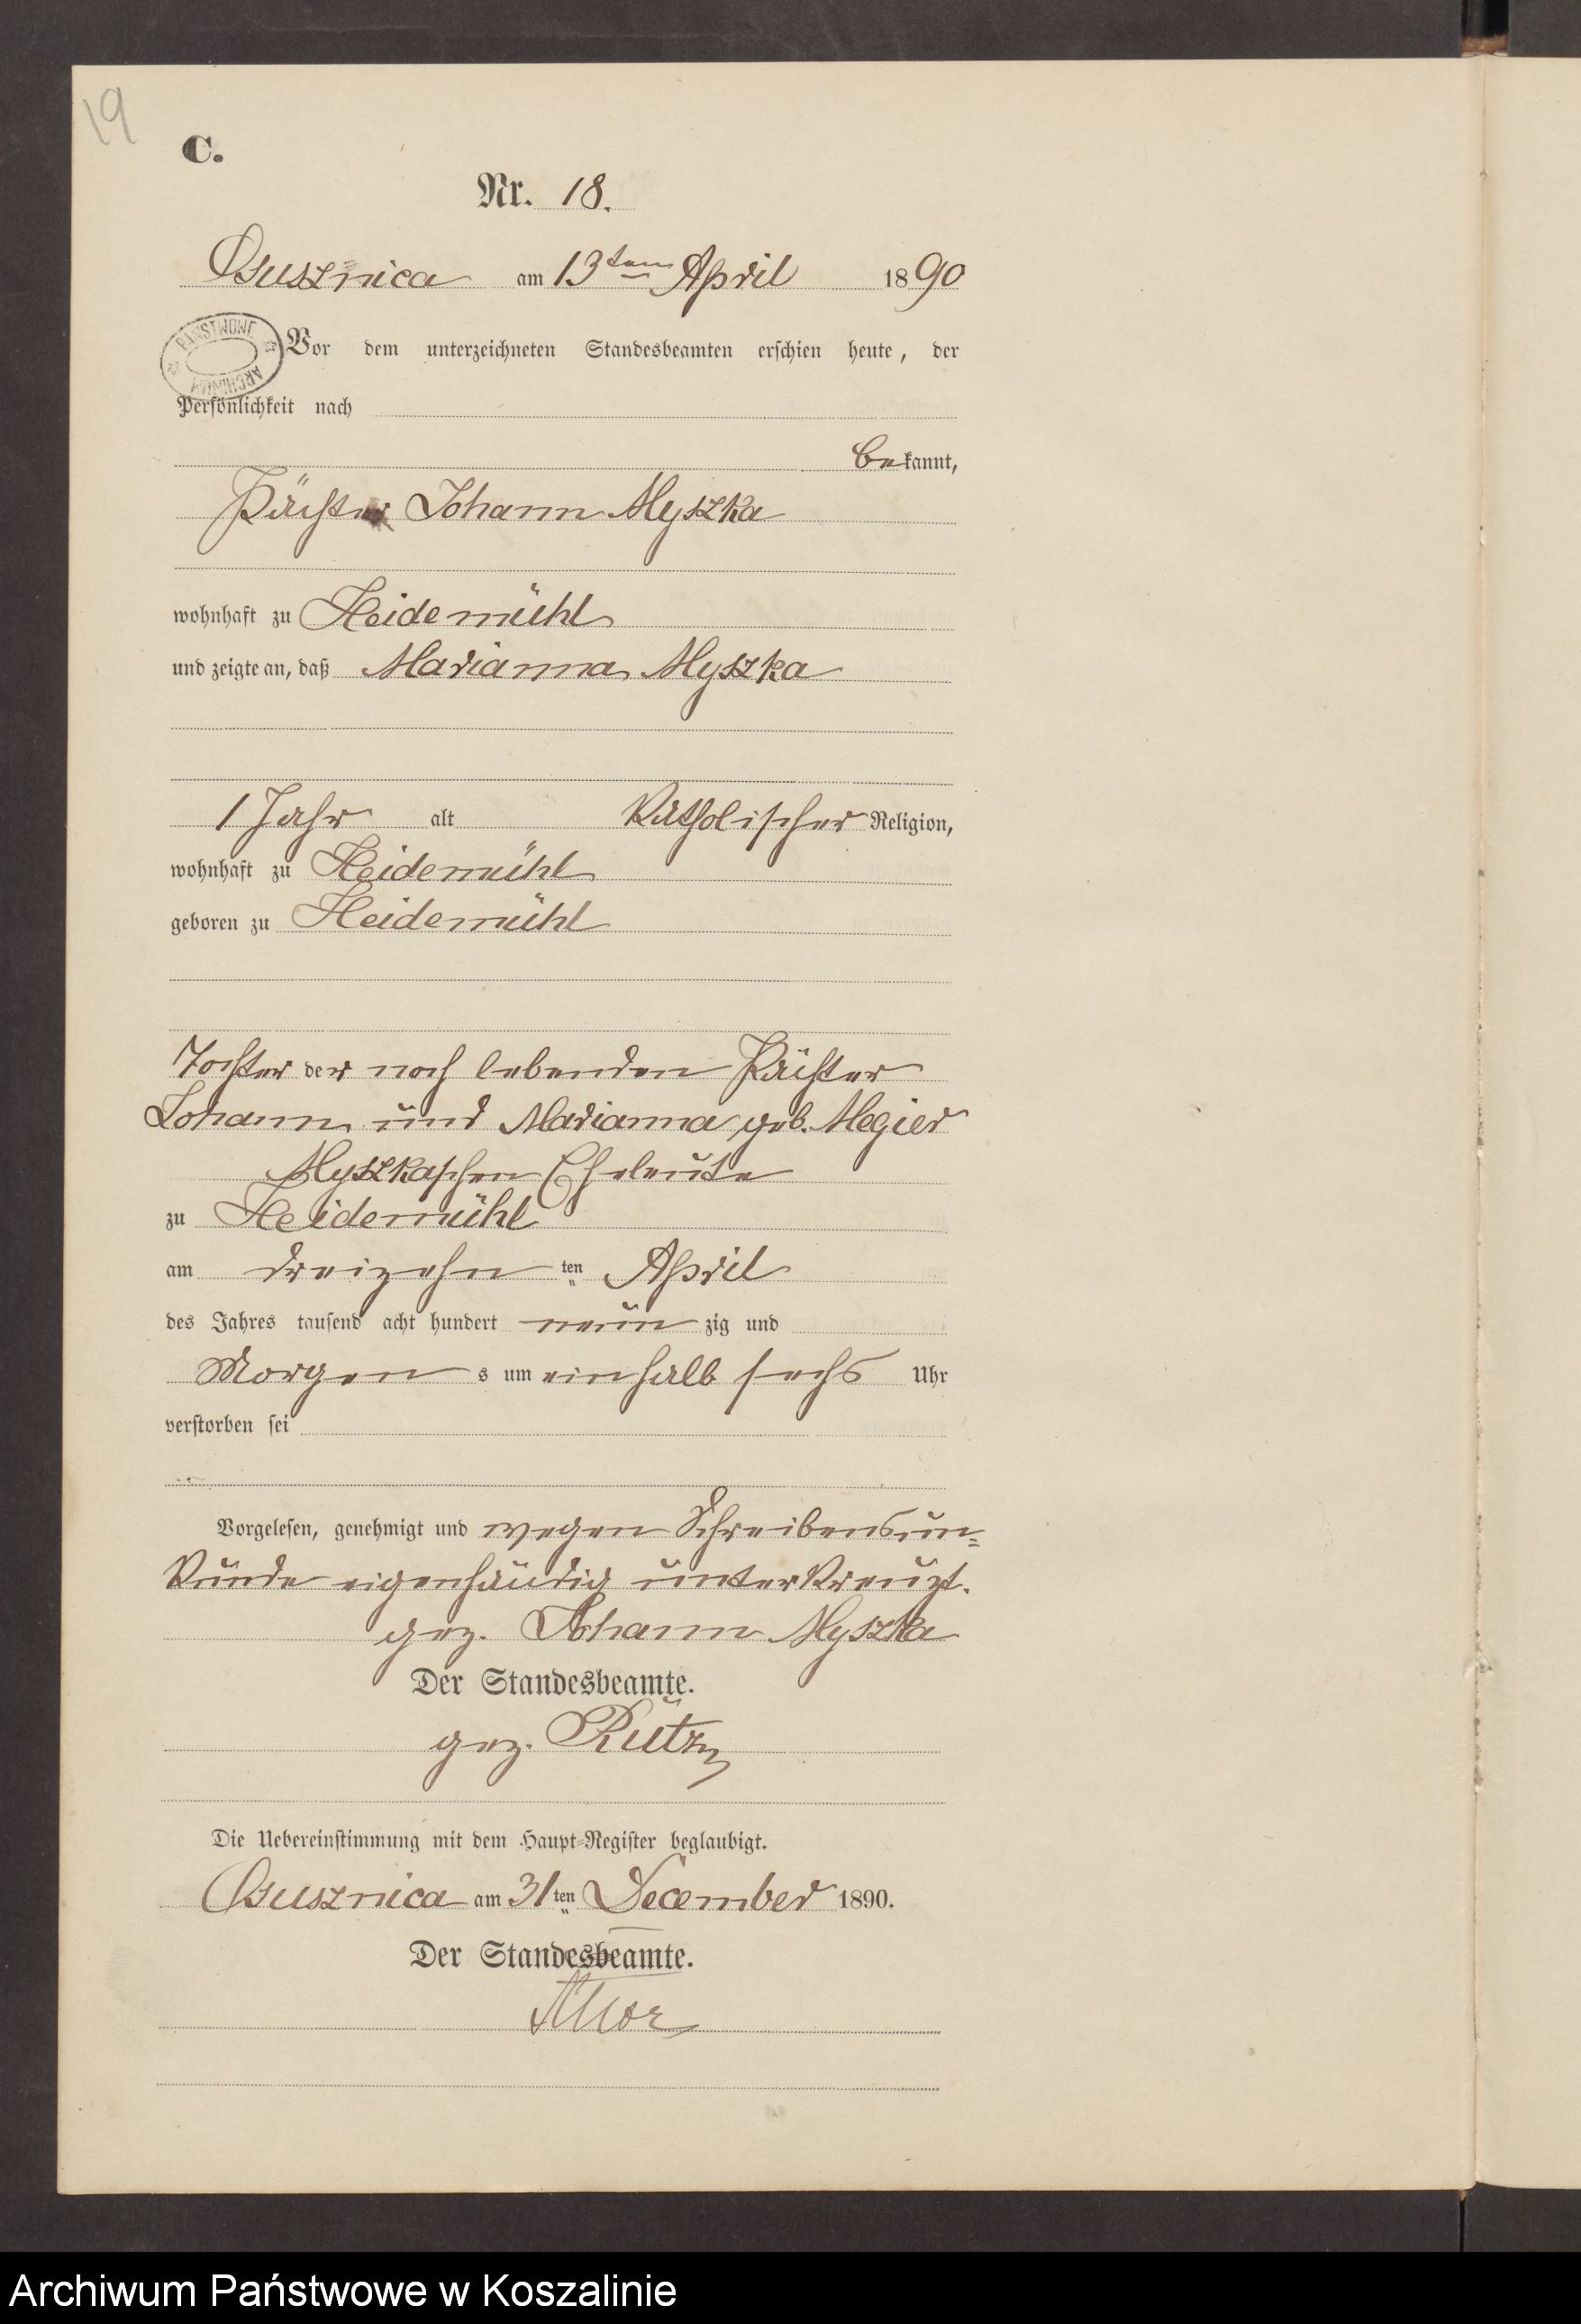 19
C.
Nr. 18.
Osusznica am 13ten April 1890
PAŃSTWOWE ARCHIWUM
Vor dem unterzeichneten Standesbeamten erschien heute, der
Persönlichkeit nach
bekannt,
Pächter Johann Myszka
wohnhaft zu Heidemühl
und zeigte an, daß Marianna Myszka
1 Jahr alt Katholischer Religion,
wohnhaft zu Heidemühl
geboren zu Heidemühl
Tochter der noch lebenden Pächter
Johann und Marianna geb. Megier
Myszkaschen Eheleute
zu Heidemühl
am dreizehn ten April
des Jahres tausend acht hundert neun zig und
Morgen s um einhalb sechs Uhr
verstorben sei
Vorgelesen, genehmigt und wegen Schreibensun=
kunde eigenhändig unterkreuzt.
gez. Johann Myszka
Der Standesbeamte.
gez. Rütz
Die Uebereinstimmung mit dem Haupt-Register beglaubigt.
Osusznica am 31ten December 1890.
Der Standesbeamte.
Archiwum Państwowe w Koszalinie